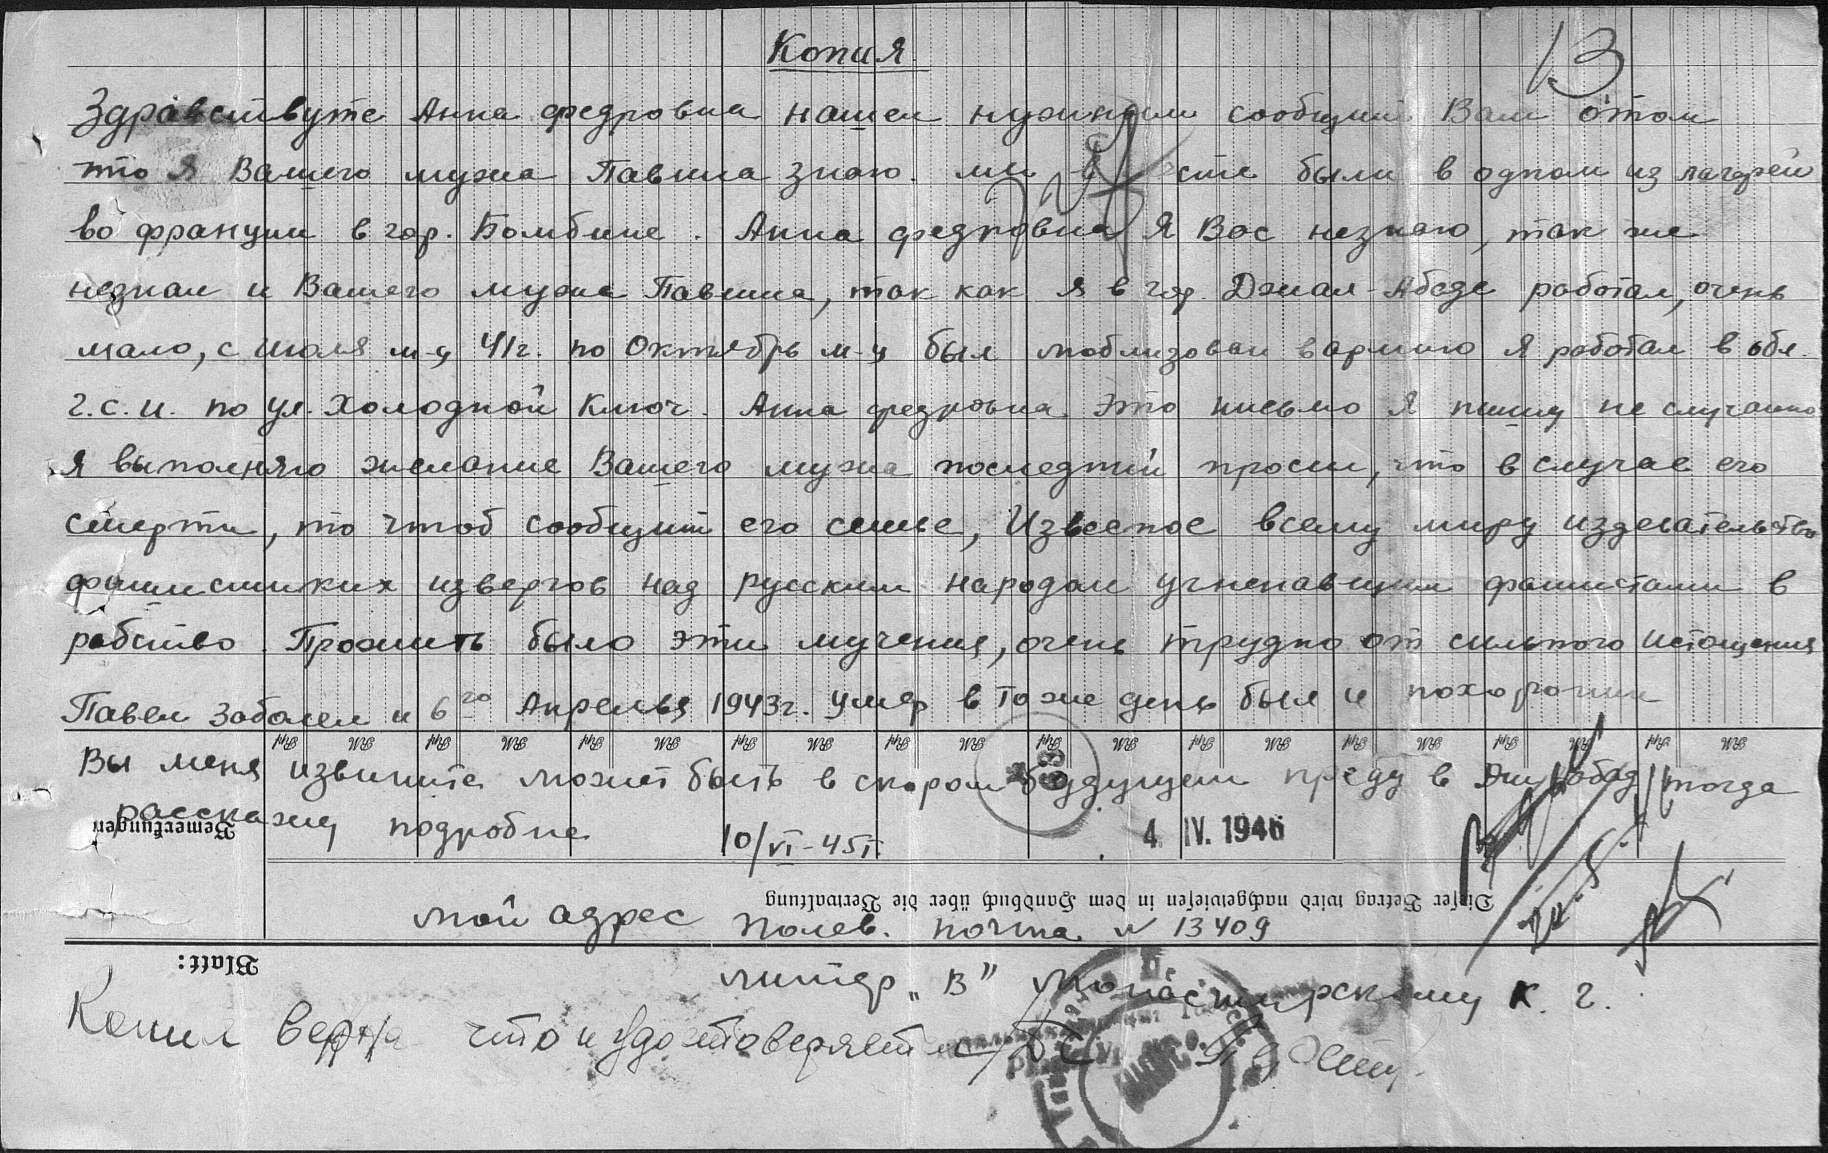 Копия
13
Здравствуте Анна федровна нашел нужным сообщит Вам отом
что я Вашего мужа Павила знаю. мы были в одном из лагерей
во франции в гор. Бомбине. Анна федровна Я Вас незнаю, так же
незнал и Вашего мужа Павила, так как я в гор. Джал-Абаде работал, очень
мало, с июля м-ц 41г. по Октябрь м-ц был моблизован вармию я работал в обл.
г.с.и. по ул. Холодной Ключ. Анна федровна это письмо я пишу не случаино
я выполняю желание Вашего мужа последний просил, что в случае его
смерти, то чтоб сообщит его семье, Известное всему миру издевательство
фашисмских извергов над русским народом угненавшим фашистами в
рабство. Прожить было эти мучения, очень трудно от сильного истощения
Павел заболел и 6го Апрельвя 1943г. умер в тоже день был и похоронин
Вы меня извините может быть в скором будущем преду в тогда
раскажу подробне 10/VI-45г.
Bemerkungen
4. IV. 1946
Dieser Betrag wird nachgewiesen in dem Handbuch über die Verwaltung
мой адрес Полев. почта № 13409
Blatt:
литер „В" Монастырскому К. г.
Копия верна что и удостоверяет